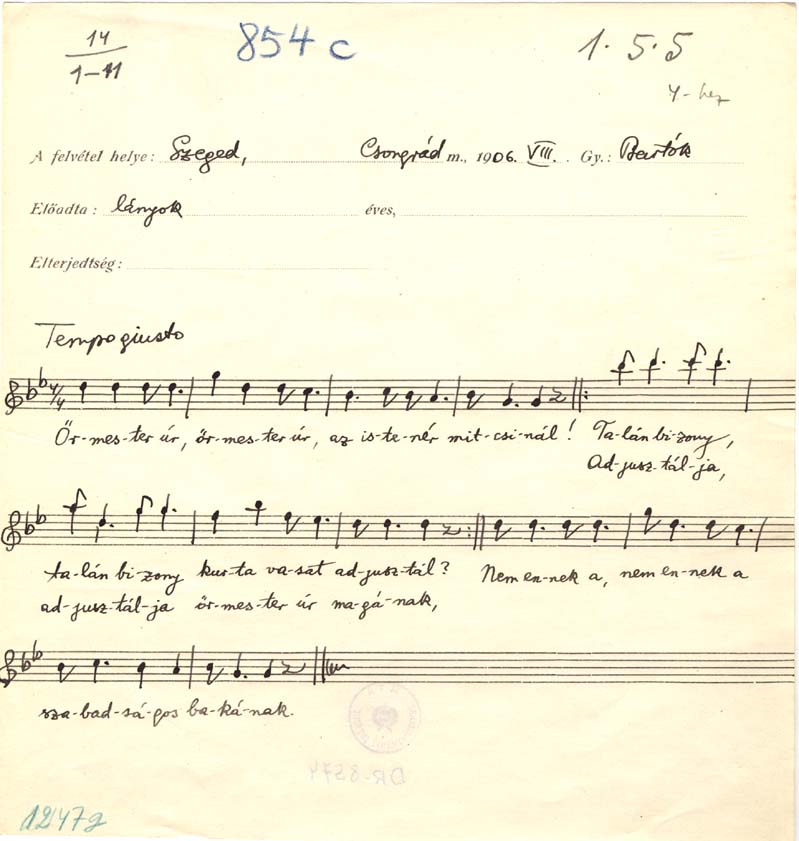 14
1-11
854 c
1. 5. 5
Y-hez
A felvétel helye: Szeged, Csongrád m., 1906. VIII. Gy.: Bartók
Előadta: lányok éves,
Elterjedtség:
Tempo giusto
4/4
Őr-mes-ter úr, őr-mes-ter úr, az is-te-nér mit-csi-nál! Ta-lán bi-zony,
Ad-jusz-tál-ja,
ta-lán bi-zony kur-ta va-sat ad-jusz-tál? Nem en-nek a, nem en-nek a
ad-jusz-tál-ja őr-mes-ter úr ma-gá-nak,
sza-bad-sá-gos ba-ká-nak.
DR-8574
1247g